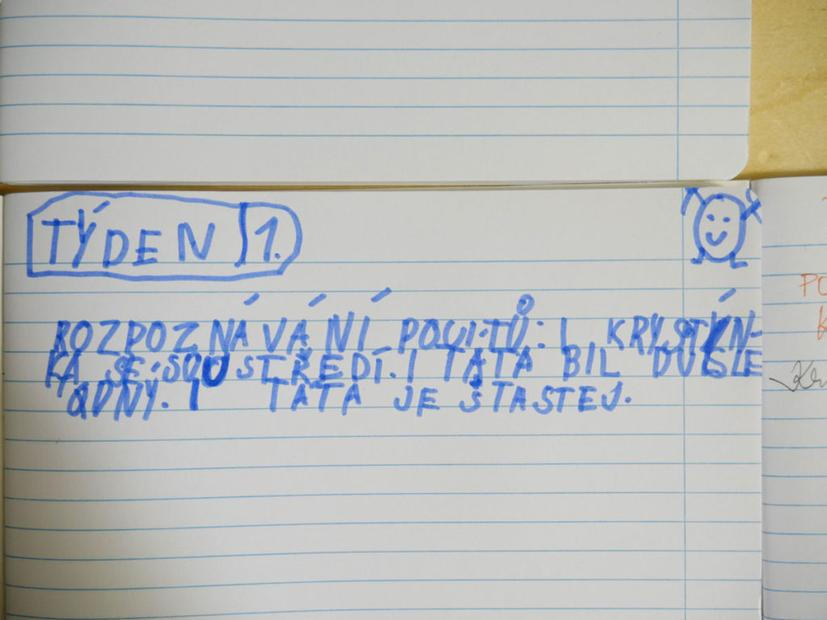 TÝDEN 1.
ROZPOZNÁVÁNÍ POCITŮ: I KRYSTÝN-
KA SE SOUSTŘEDÍ. I TÁTA BIL DUSLE
DNÝ. I TÁTA JE ŠTASTEJ.
PO